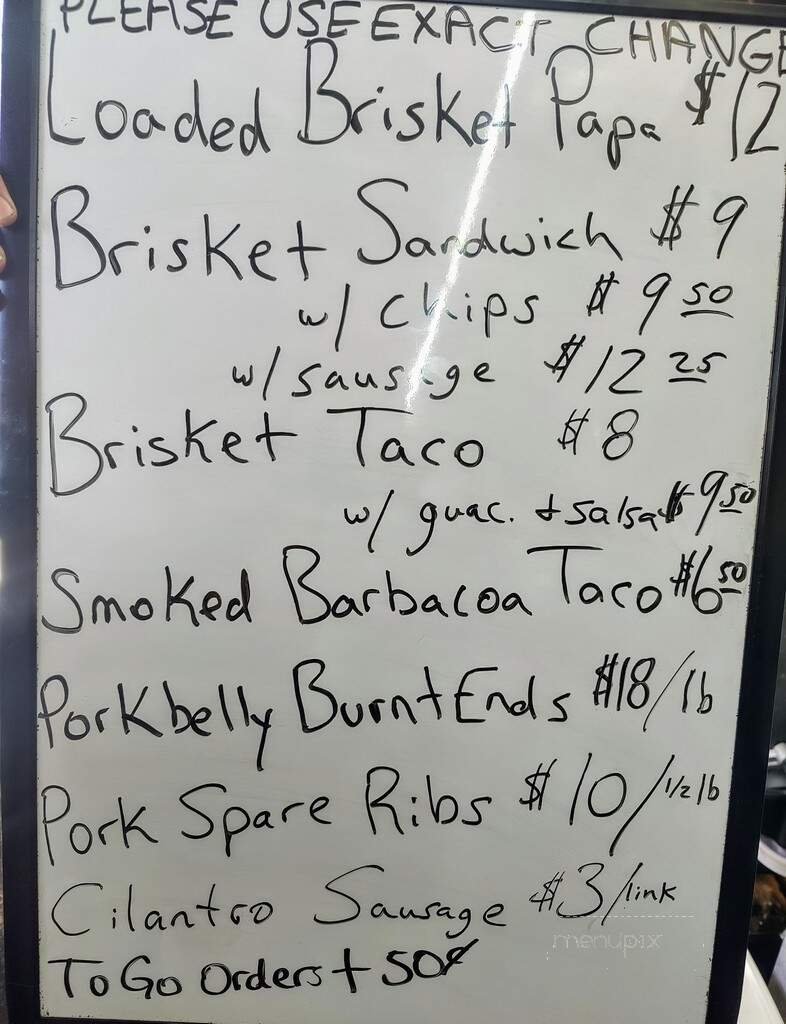 PLEASE USE EXACT CHANGE
Loaded Brisket Papa $12
Brisket Sandwich $9
w/ chips $9 50
w/ sausage $12 25
Brisket Taco $8
w/ guac. + salsa $9 50
Smoked Barbacoa Taco $6 50
Porkbelly Burnt Ends $18/lb
Pork Spare Ribs $10/1/2 lb
Cilantro Sausage $3/link
menupix
To Go Orders + 50¢